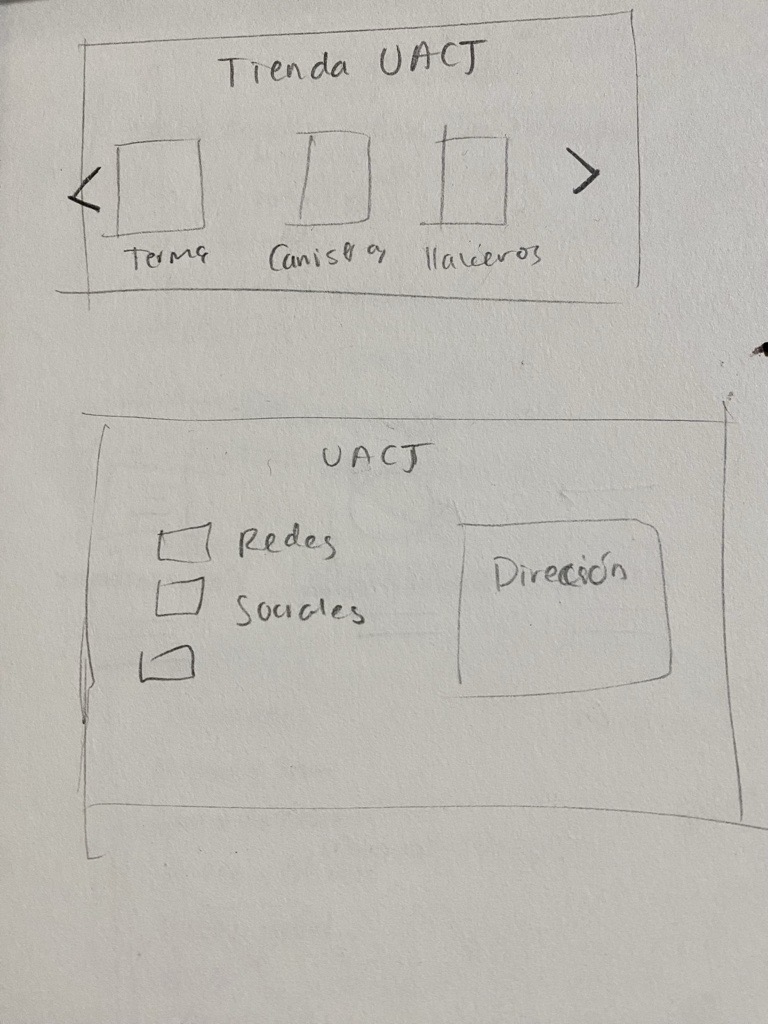 Tienda UACJ
<
>
Terma
llaveros
UACJ
Redes
Sociales
Dirección